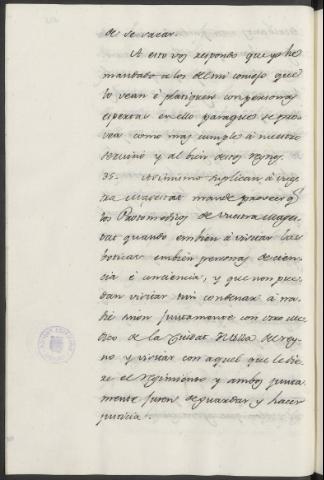 de se sacar.
A esto vos respondo que yo he
mandado a los del mi consejo que
lo vean é platiquen con personas
espertas en ello para que se pro-
vea como mas cumple á nuestro
servicio y al bien destos reynos.
35. Assimismo suplican á vues-
tra Magestad mande proveer q.e
los Protomedicos de vuestra Mages-
tad quando embien á visitar las
boticas embien personas de cien-
cia é conciencia, y que non pue-
dan visitar nin condenar á na-
die sinón juntamente con otro me-
dico de la Ciudad ó Villa del rey-
no y visitar con aquel que le die-
re el regimiento y ambos junta-
mente juren de guardar y hacer
justicia.